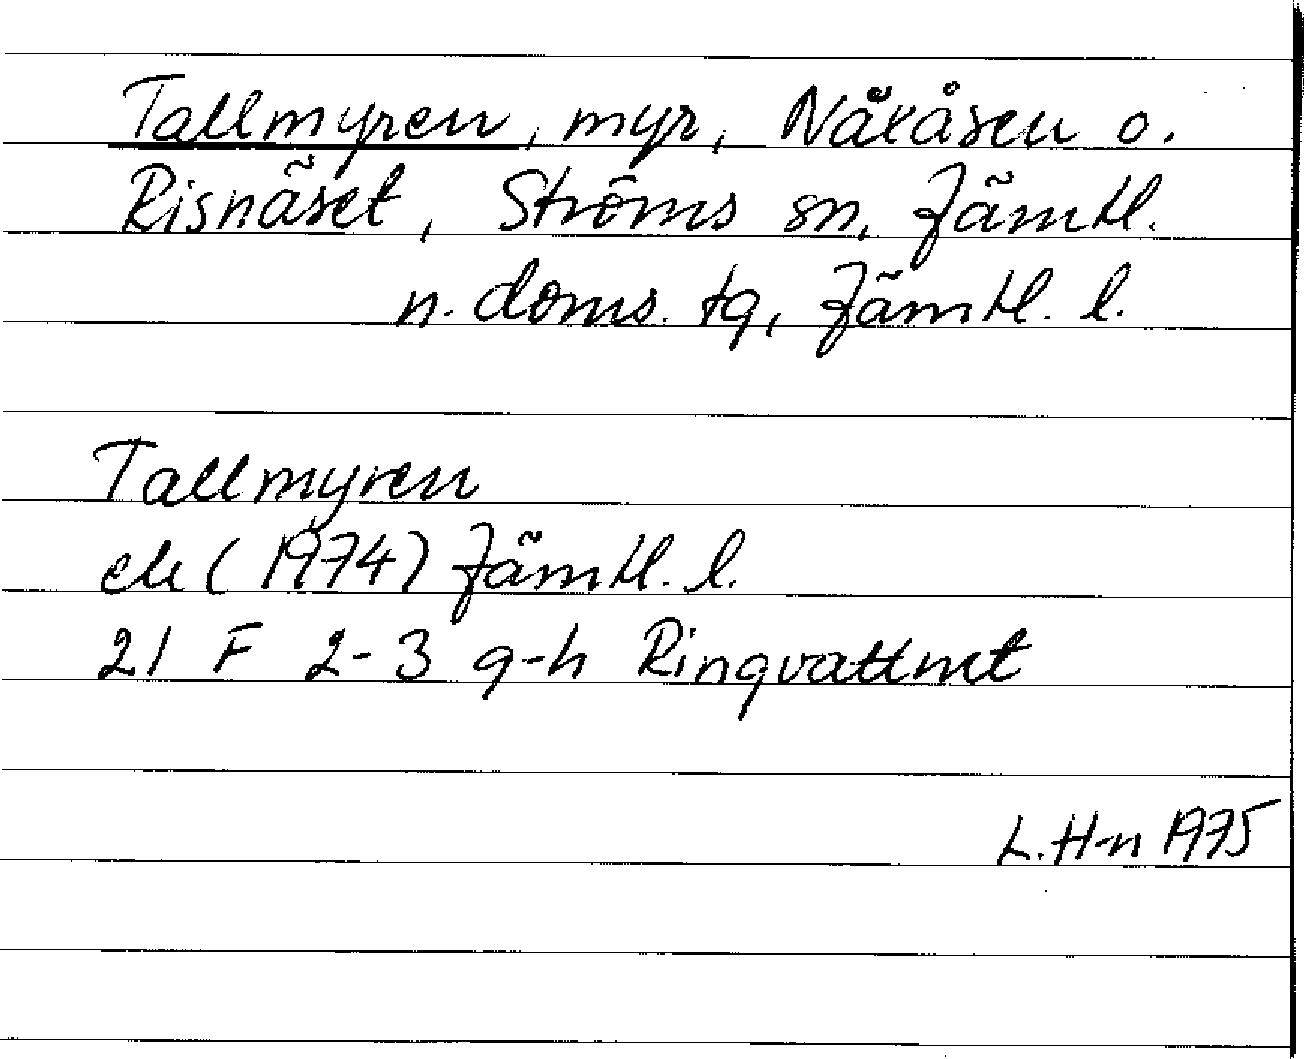 Tallmyren, myr, Nåxåsen o.
Risnäset, Ströms sn, Jämtl.
n. doms. tg, Jämtl. l.
Tallmyren
ek (1974) Jämtl. l.
21 F 2-3 g-h Ringvattnet
L. H-n 1975